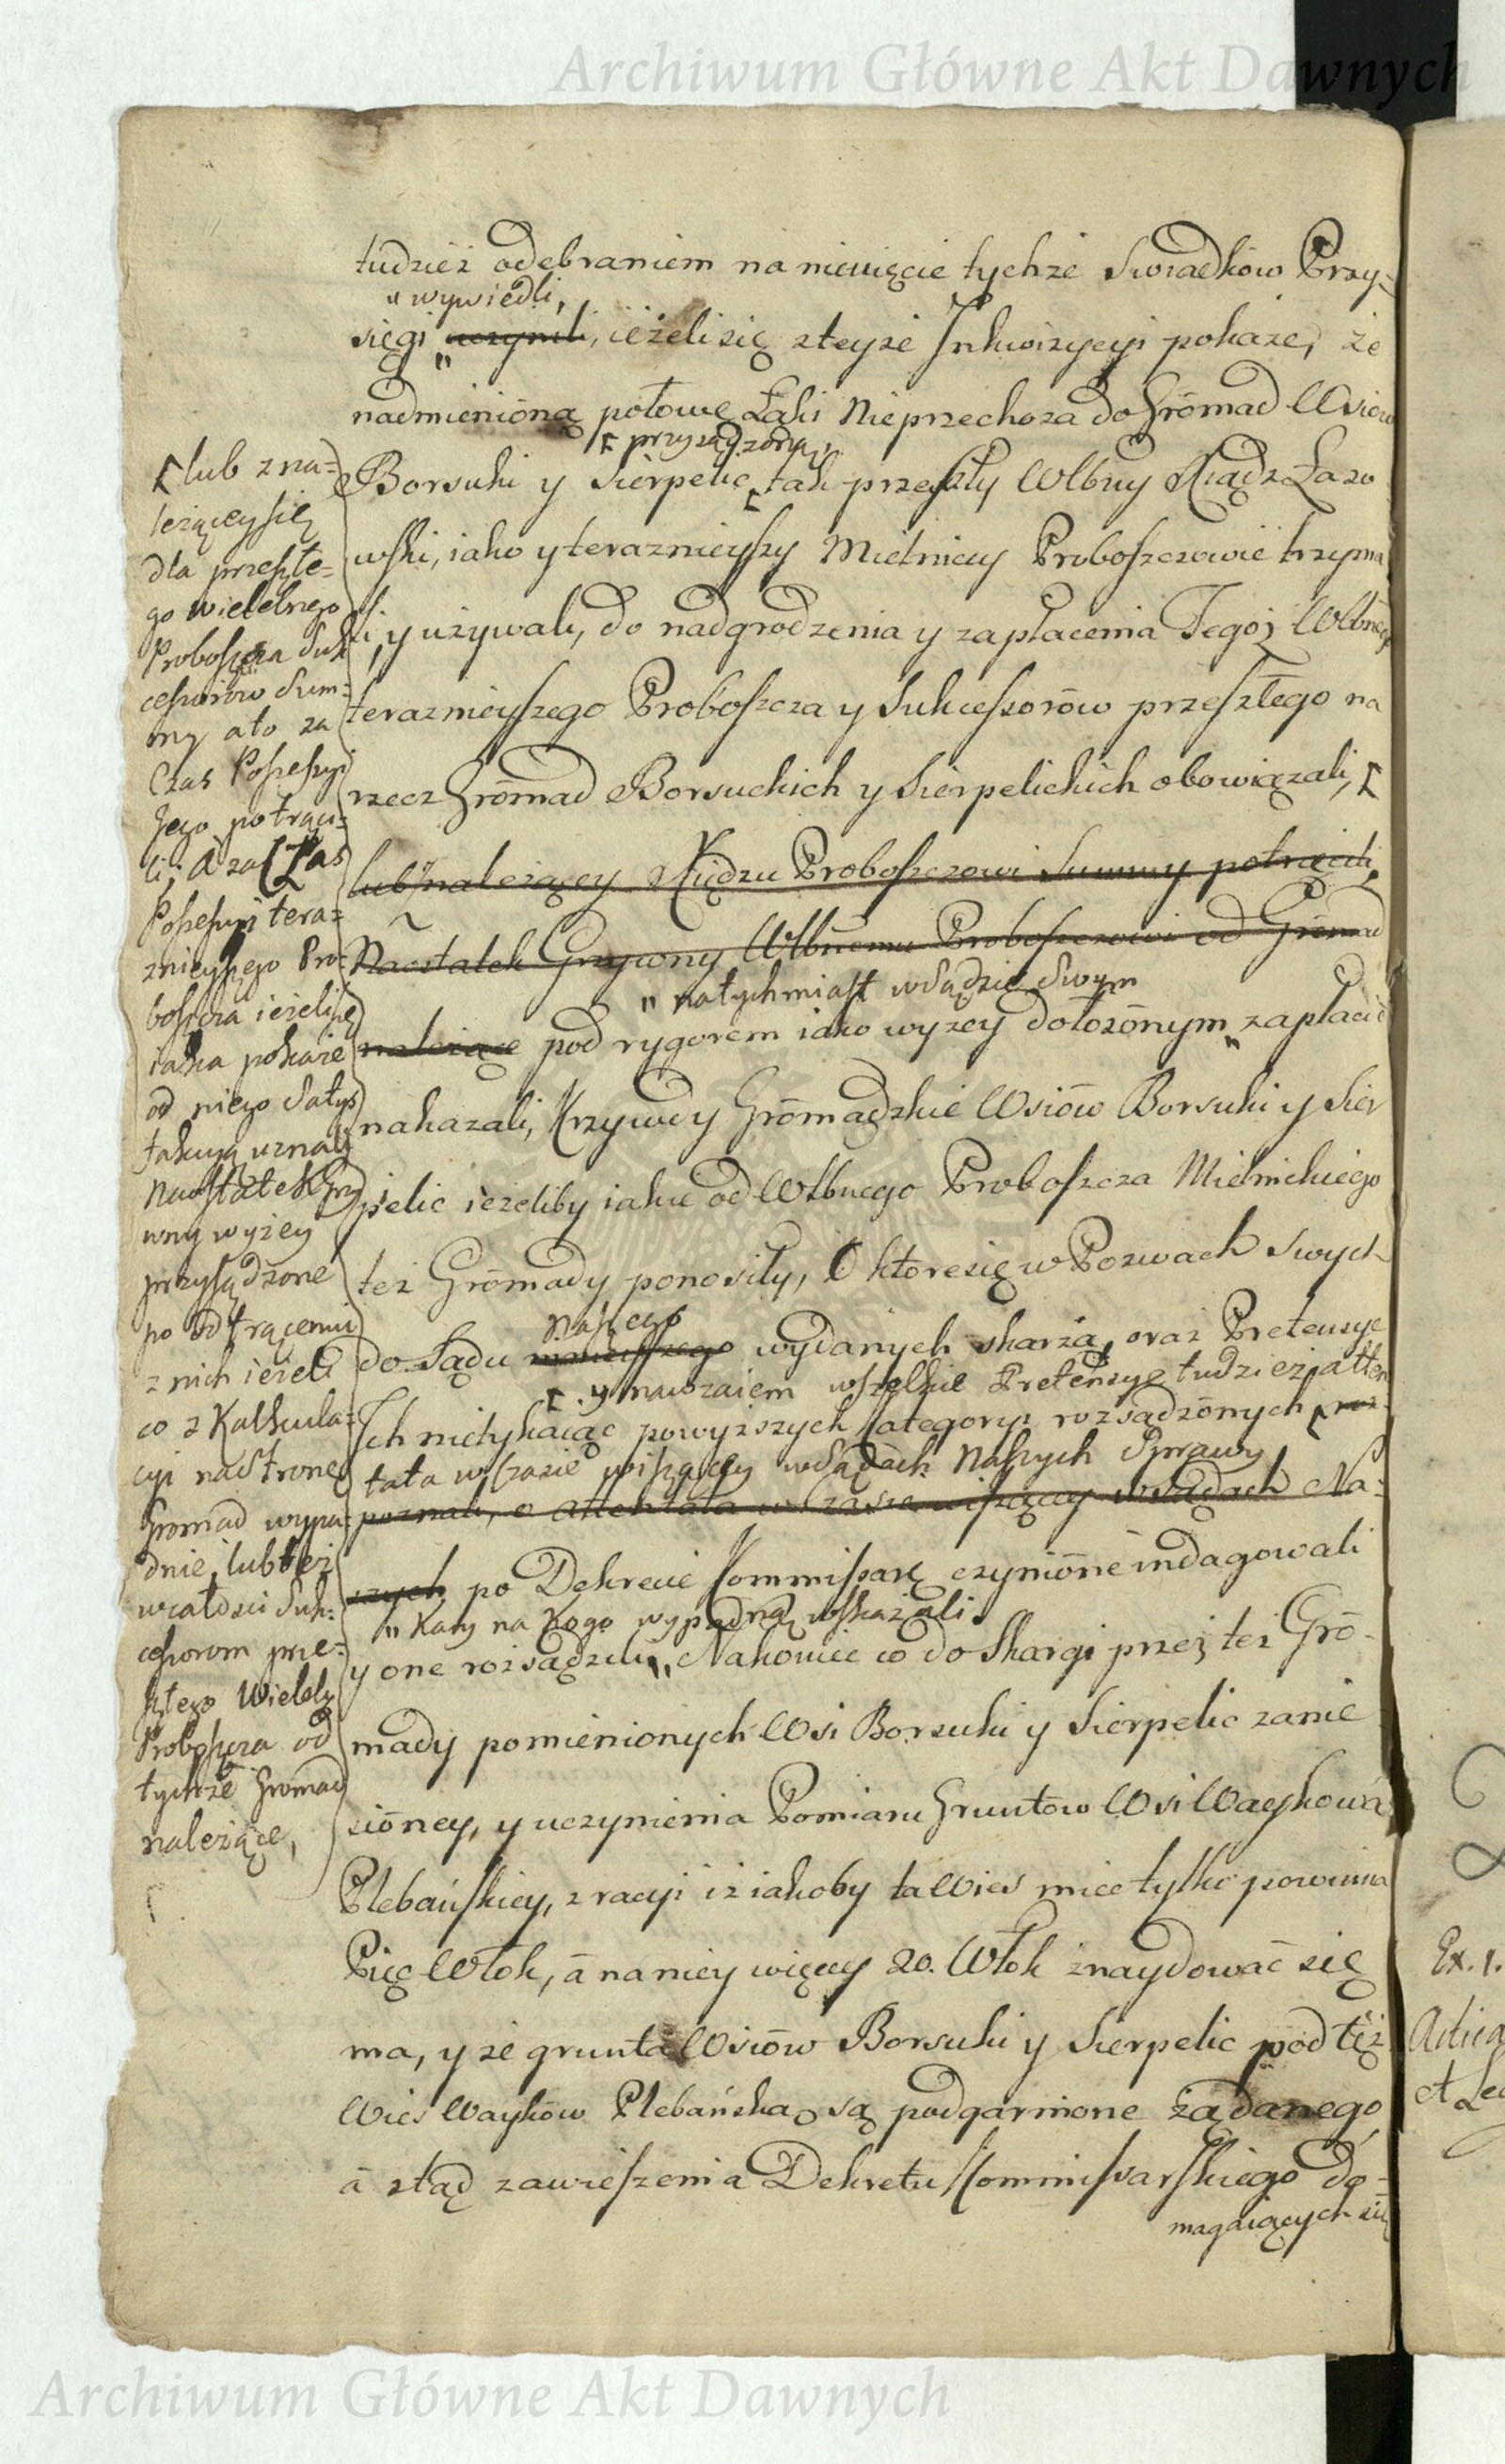 Archiwum Główne Akt Dawnych
tudzież odebraniem na niewięcie tychże Swiadków Przy-
" wywiedli,
sięgi uczynili, ieżeli się zteyże Inkwizycyi pokaże, że
nadmienioną połowę Łąki Nieprzechoza do Grómad Wsiow
⁅ przysądzoną,
Borsuki y Sierpelic tak przeszły Wlbny Xiądz Łazo
wski, iako y teraznieyszy Mielniccy Proboszczowie trzyma
li, y używali, do nadgrodzenia y zapłacenia Tegoż Wlbnego
teraznieyszego Proboszcza y Sukcessorów przeszłego na
rzecz Grómad Borsuckich y Sierpelickich obowiązali, ⁅
lub należącey Xiędzu Proboszczowi Summy potrącili,
Naostatek Grzywny Wlbnemu Proboszczowi od Grómad
" natychmiast w Sądzie Swym
należące pod rygorem iako wyżey dołożónym zapłacić
nakazali, Krzywdy Grómadzkie Wsiów Borsuki y Sier
pielic ieżeliby iakie od Wlbnego Proboszcza Mielnickiego
też Grómady ponosiły, O które się w Pozwach swych
Naszego
do Sądu wydanych skarżą, oraz Pretensye
⁅ y nawzaiem wszelkie Pretensye tudzież atten
Ich nietykaiąc powyższych Kategoryi rozsądzónych roz-
tata w Czasie wiszącey w Sądach Naszych Sprawy
poznali, o attentata w Czasie wiszącey w Sądach Na-
szych po Dekrecie Kommissarz czynióne indagowali
" Kary na Kogo wypadną wskazali.
y one rozsądzili, Nakoniec co do Skargi przez też Gró-
mady pomienionych Wsi Borsuki y Sierpelic zanie
sióney, y uczynienia Pomiaru Gruntów Wsi Waykowa
Plebańskiey, z racyi iż iakoby ta Wies miec tylko powinna
Pięć Włók, á na niey więcey 20. Włók znaydować się
ma, y że grunta Wsiów Borsuki y Sierpelic pod też
Wies Wayków Plebańska są podgarnione żądanego
á ztąd zawieszenia Dekretu Kommissarskiego do-
magaiących się
⁅ lub zna-
leżącey się
dla przeszłe-
go Wielebnego
Proboszcza Suk
cessorów Sum-
my a to za
Czas Possessyi
Jego potrąci-
li; A za Czas
Possessyi tera-
znieyszego Pro-
boszcza ieżeli się
iaka pokaże
od niego Satys
fakcyą uznali
Naostatek Grzy
wny wyżey
przysądzone
po odtrąceniu
z nich ieżeli
co z Kalkula-
cyi na Stronę
Gromad wypa-
dnie, lub też
właści Suk-
cessorom prze-
szłego Wielebg
Proboszcza od
tychże Gromad
należące,
Ex. 1.
Archiwum Główne Akt Dawnych